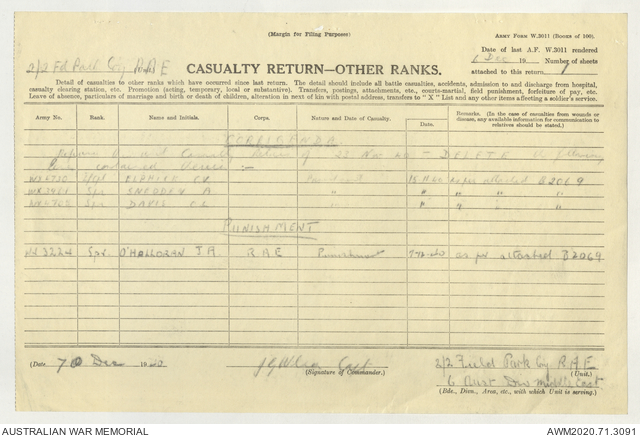 (Margin for Filing Purposes)
ARMY FORM W.3011 (BOOKS OF 100).
2/2 Fd Park Coy R.A.E
CASUALTY RETURN—OTHER RANKS.
Date of last A.F. W.3011 rendered
6 Dec 19 Number of sheets
attached to this return 1
Detail of casualties to other ranks which have occurred since last return. The detail should include all battle casualties, accidents, admission to and discharge from hospital,
casualty clearing station, etc. Promotion (acting, temporary, local or substantive). Transfers, postings, attachments, etc., courts-martial, field punishment, forfeiture of pay, etc.
Leave of absence, particulars of marriage and birth or death of children, alteration in next of kin with postal address, transfers to "X" List and any other items affecting a soldier's service.
Army No. Rank. Name and Initials. Corps. Nature and Date of Casualty. Date. Remarks. (In the case of casualties from wounds or disease, any available information for communication to relatives should be stated.)
CORRIGENDA
Casualty Return of 22 Nov 40 — DELETE
contained therein :—
as per attached B2069
Spr SNEDDEN A " " " "
Spr DAVIS " " " "
PUNISHMENT
3224 Spr. O'HALLORAN J.A. R A E Punishment 7-12-40 as per attached B2069
(Date 7 Dec 1940
Capt
(Signature of Commander.)
2/2 Field Park Coy R.A.E
(Unit.)
6 Aust Div Middle East
(Bde., Divn., Area, etc., with which Unit is serving.)
AUSTRALIAN WAR MEMORIAL
AWM2020.71.3091